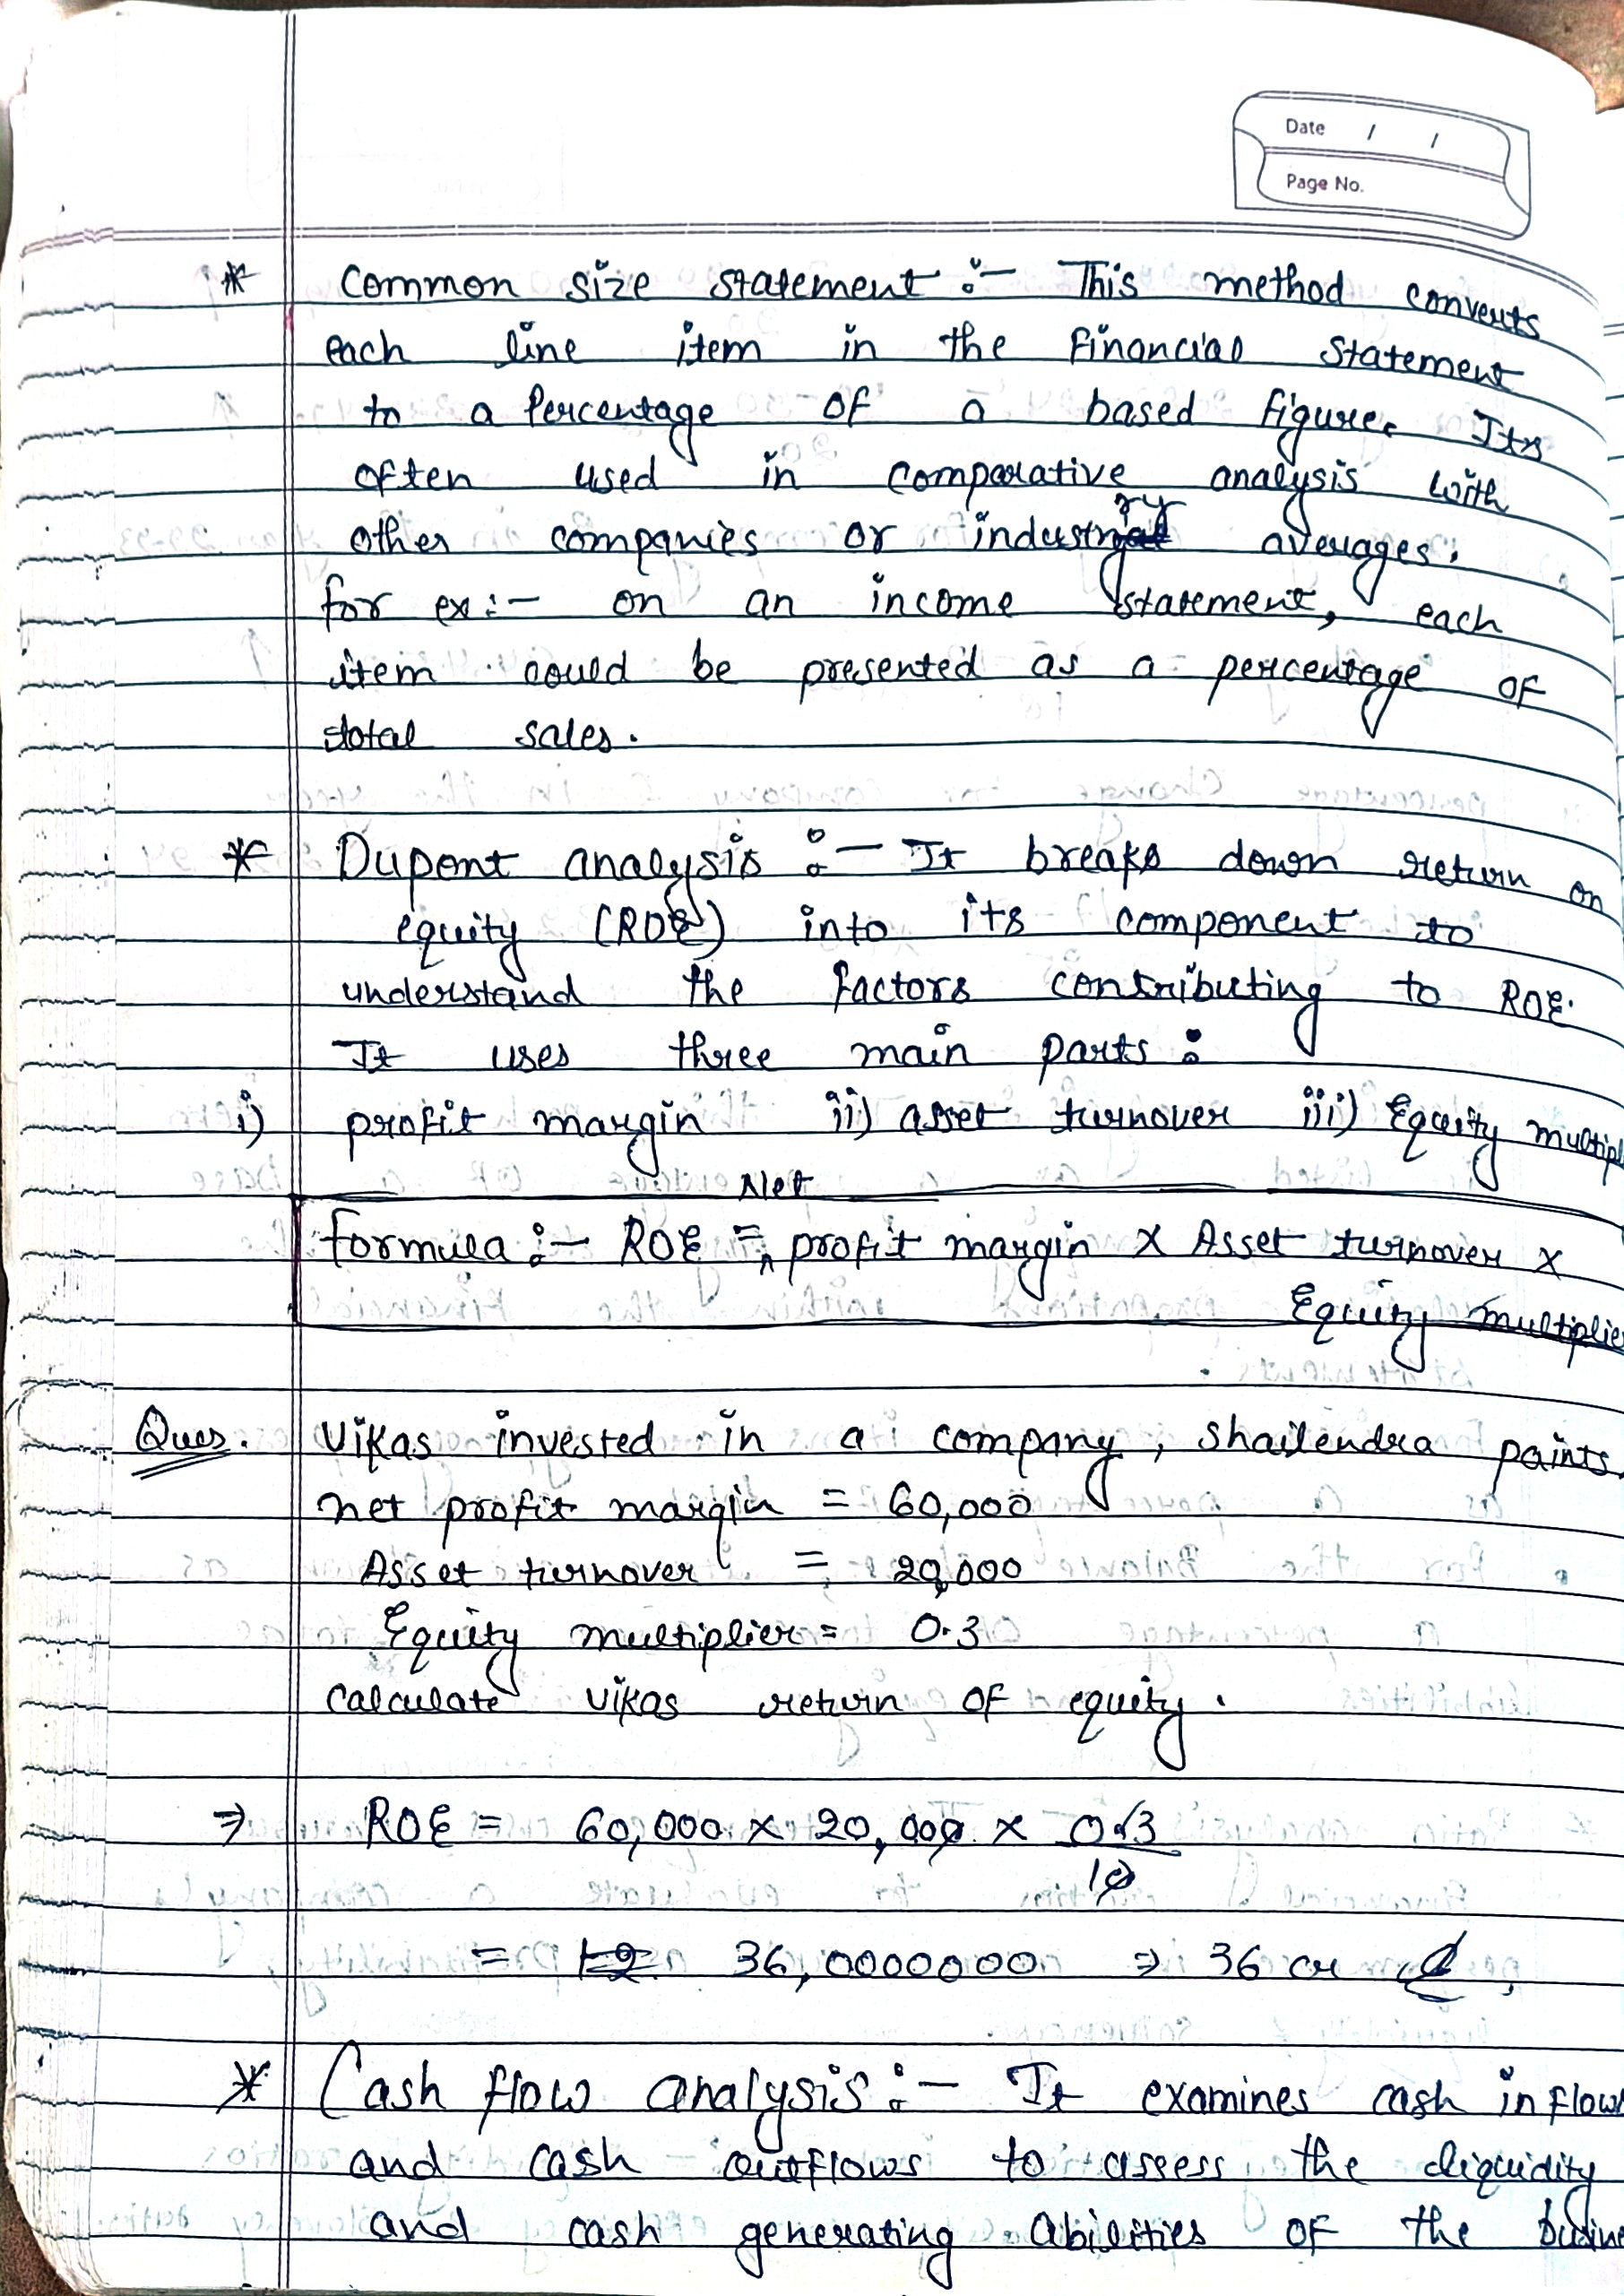 Date / /
Page No.
* Common size statement :- This method converts
each line item in the financial statement
to a Percentage of a based figure. Its
often used in comparative analysis with
other companies or industry averages.
for ex :- on an income statement, each
item could be presented as a percentage of
total sales.
* Dupont analysis :- It breaks down return on
equity (ROE) into its component to
understand the factors contributing to ROE.
It uses three main parts :
i) profit margin ii) asset turnover iii) Equity multipl
Net
formula :- ROE = profit margin x Asset turnover x
Equity multiplie
Ques. Vikas invested in a company, shailendra paints
net profit margin = 60,000
Asset turnover = 20,000
Equity multiplier = 0.3
Calculate vikas return of equity.
⇒ ROE = 60,000 x 20,000 x 0.3
10
= 36,0000000 ⇒ 36 cr
* Cash flow analysis :- It examines cash inflow
and cash outflows to assess the liquidity
and cash generating abilities of the busine